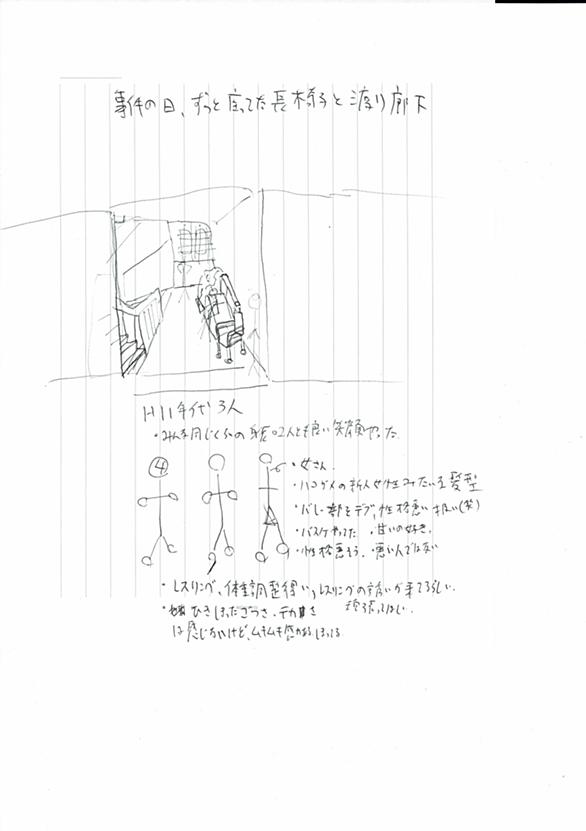 事件の日、ずっと座ってた長椅子と渡り廊下
H11年代 3人
・みんな同じくらいの身長。2人とも良い笑顔やった
④
・女さん
・ハコヅメの新人女性みたいな髪型
・バレー部をデブ、性格悪い 扱い(笑)
・バスケやってた ・甘いの好き。
・性格悪そう。・悪い人ではない
・レスリング、体重調整得い、レスリングの誘いが来てるらしい。
頑張ってほしい。
ひきしまった
は感じないけど、ムキムキ感がある